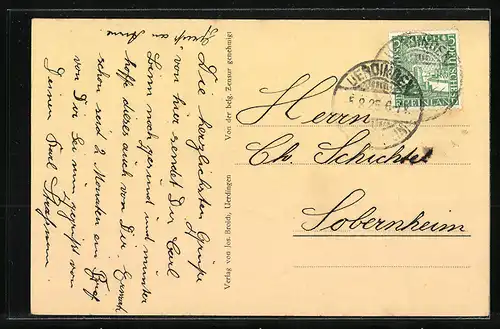 Gruß an Anna
Die herzlichsten Grüße
von hier sendet Dir Carl
Bin noch gesund und munter
hoffe dieses auch von Dir. Erwarte
schon seit 2 Monaten ein Brief
von Dir. Sei nun gegrüßt von
Deinem Karl
Von der belg. Zensur genehmigt
Verlag von Jos. Brosch, Uerdingen
UERDINGEN
5.8.25.6-7
Herrn
Ch. Schichtel
Sobernheim